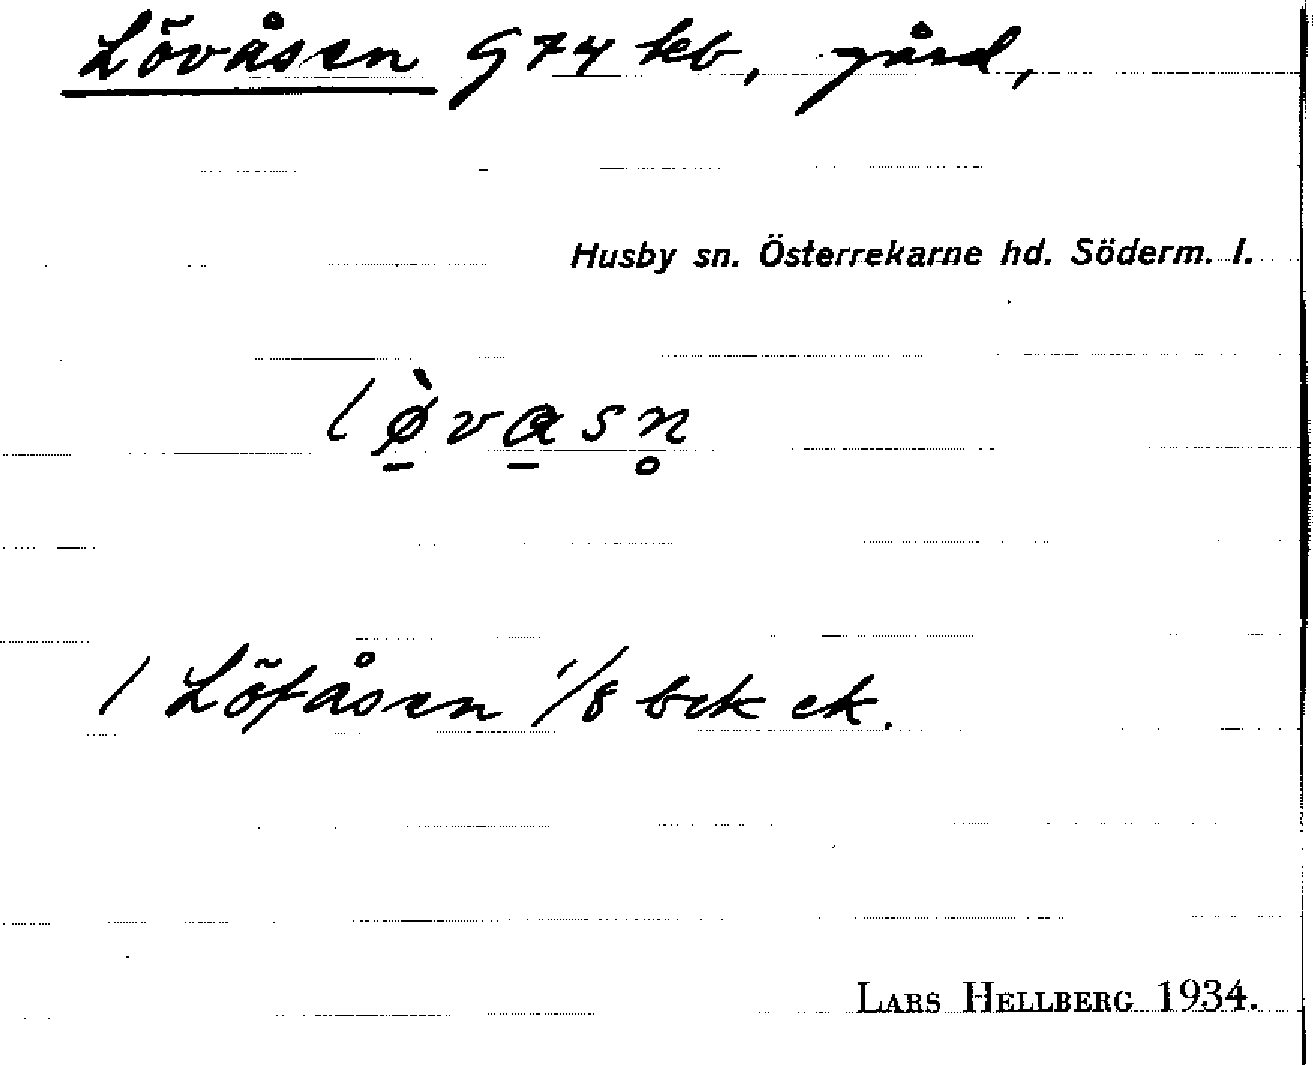 Lövåsen G74 kb, gård,
Husby sn. Österrekarne hd. Söderm. l.
lø̠̀va̠sn̥
1 Löfåsen 1/8 bck ek.
LARS HELLBERG 1934.